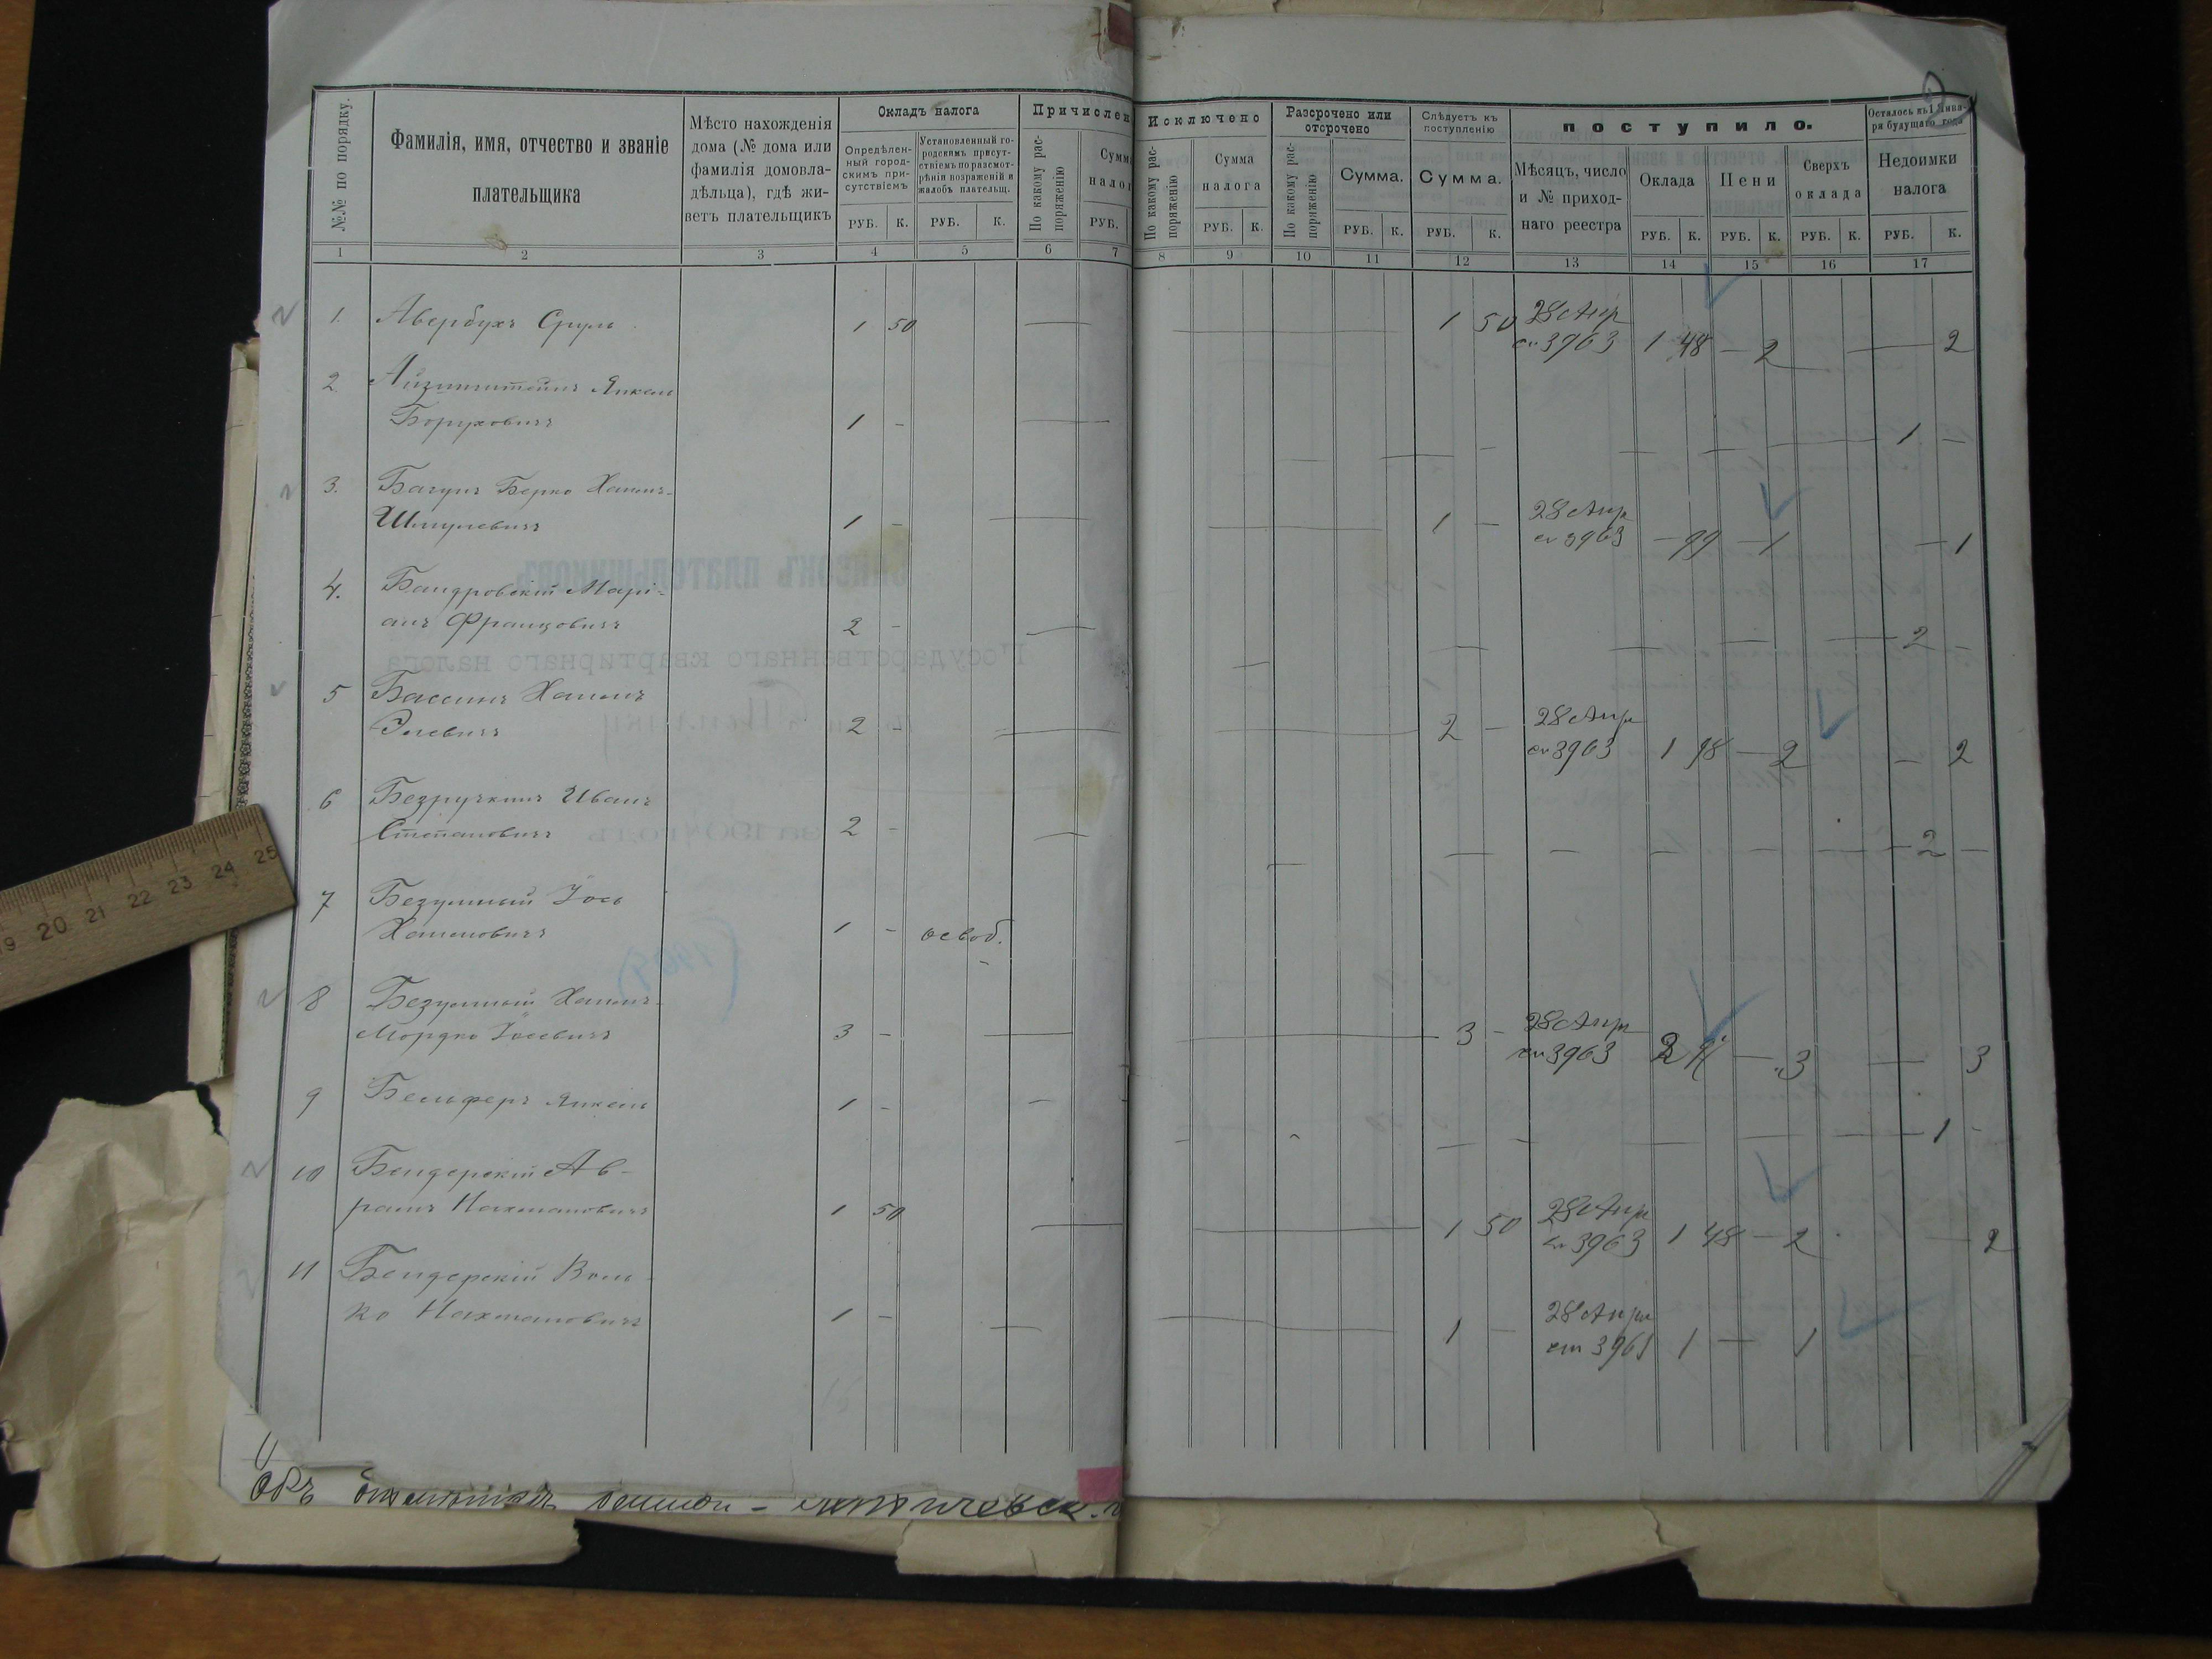 №№ по порядку.
Фамилія, имя, отчество и званіе
плательщика
Мѣсто нахожденія
дома (№ дома или
фамилія домовла-
дѣльца), гдѣ жи-
ветъ плательщикъ
Окладъ налога
Опредѣлен-
ный город-
скимъ при-
сутствіемъ
Установленный го-
родскимъ присут-
ствіемъ по разсмот-
рѣніи возраженій и
жалобъ плательщ.
РУБ. К. РУБ. К.
Причислен
По какому рас-
поряженію
Сумма
налог
РУБ.
Исключено
По какому рас-
поряженію
Сумма
налога
РУБ. К.
Разсрочено или
отсрочено
По какому рас-
поряженію
Сумма.
РУБ. К.
Слѣдуетъ къ
поступленію
Сумма.
РУБ. К.
поступило.
Мѣсяцъ, число
и № приход-
наго реестра
Оклада
РУБ. К.
Пени
РУБ. К.
Сверхъ
оклада
РУБ. К.
Осталось къ 1 Янва-
ря будущаго года
Недоимки
налога
РУБ. К.
1 2 3 4 5 6 7 8 9 10 11 12 13 14 15 16 17
1. Авербухъ Сруль 1 50 — — 1 50 28 Апр
ст 3963 1 48 — 2 — 2
2 Айзинштейнъ Янкель
Боруховичъ 1 - — — 1 —
3. Багунъ Берко Хаимъ-
Шмулевичъ 1 - — — 1 — 28 Апр
ст 3963 — 99 — 1 — 1
4. Бандровскій Марі-
анъ Францовичъ 2 - — — 2 -
5 Бассинъ Хаимъ
Элевичъ 2 - — — 2 — 28 Апр
ст 3963 1 98 — 2 — 2
6 Безручкинъ Иванъ
Степановичъ 2 - — — 2 —
7 Безумный Іось
Хаимовичъ 1 - освоб.
8 Безумный Хаимъ-
Мордко Іосевичъ 3 - — — 3 - 28 Апр
ст 3963 2 — 3 — 3
9 Бельферъ Янкель 1 - — — 1 -
10 Бендерскій Ав-
рамъ Нахмановичъ 1 50 — — 1 50 28 Апр
ст 3963 1 48 — 2 — 2
11 Бендерскій Воль-
ко Нахмановичъ 1 - — — 1 — 28 Апр
ст 3963 1 — 1
19 20 21 22 23 24 25